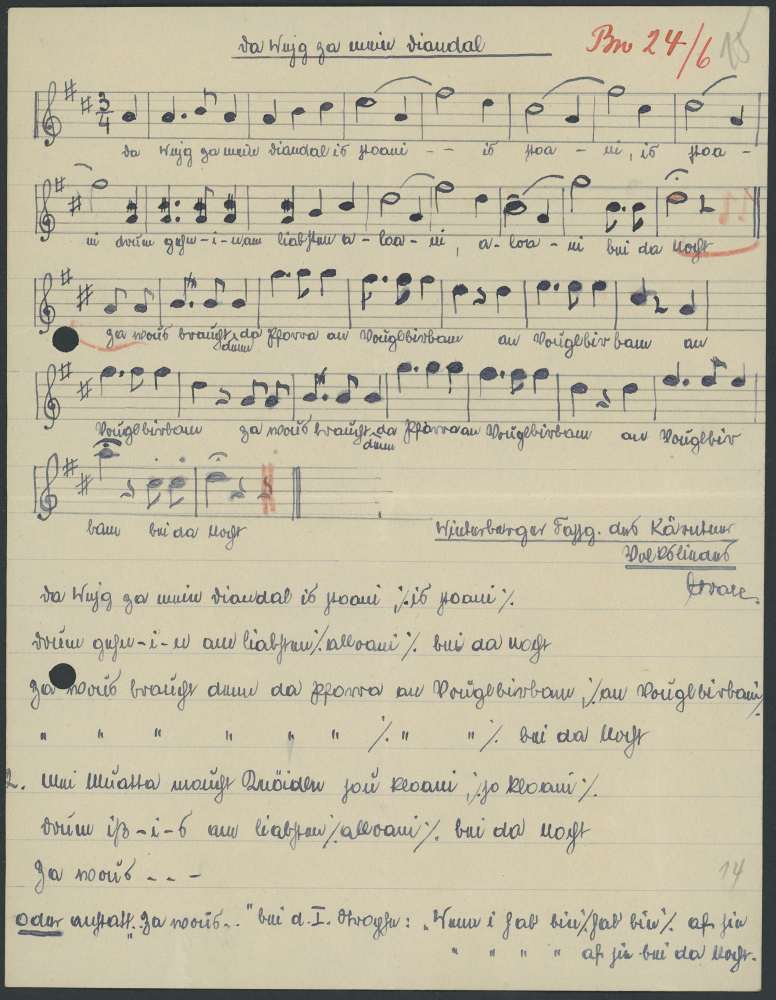 Da Weg za mein Diandal
Bn 24/6 15
3/4
Da Weg za mein Diandal is stoani -- is stoa - ni, is stoa -
ni drum gehn-i-nam liabsten a-loa-ni, a-loa-ni bei da Nacht
Za wous braucht da Pforra an Vouglbirbam an Vouglbirbam an
denn
Vouglbirbam za wous braucht da Pforra an Vouglbirbam an Vouglbir
denn
bam bei da Nacht
Winterberger Fassg. des Kärntner
Volksliedes
Da Weg za mein Diandal is stoani ;/: is stoani :/.
Drum gehn-i-n am liabsten /: alloani :/. bei da Nacht
Za wous braucht denn da Pforra an Vouglbirbam ;/: an Vouglbirbam :/.
" " " " " " /. " " /. bei da Nacht
2. Mei Muatta moucht Knöidln sou kloani ;/: so kloani :/.
Drum iß-i-s am liabsten /: alloani :/. bei da Nacht
Za wous - - -
oder anstatt "Za wous.." bei d. I. Strophe: "Wenn i hab bin /: hab bin :/. af sie
" " " " af sie bei da Nacht.
14